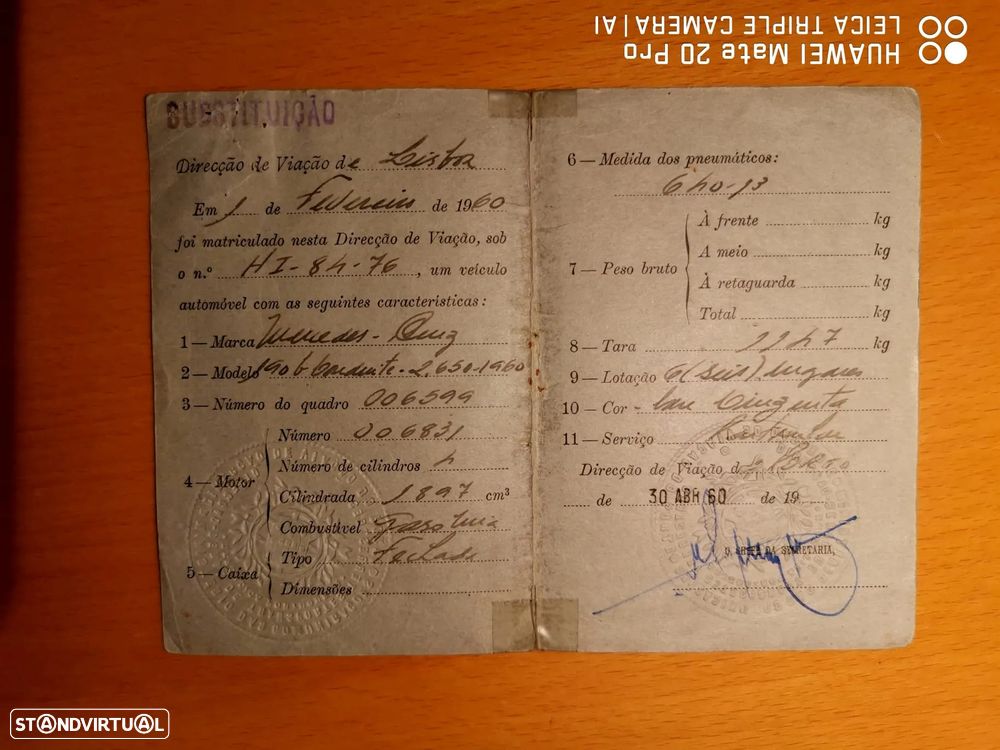 HUAWEI Mate 20 Pro
LEICA TRIPLE CAMERA | AI
SUBSTITUIÇÃO
Direcção de Viação de Lisboa
Em 1 de Fevereiro de 1960
foi matriculado nesta Direcção de Viação, sob
o n.º HI-84-76, um veículo
automóvel com as seguintes características:
1 — Marca Mercedes-Benz
2 — Modelo 190 b 2.650-1960
3 — Número do quadro 006599
4 — Motor
Número 006831
Número de cilindros 4
Cilindrada 1897 cm³
Combustível Gasolina
5 — Caixa
Tipo Fechada
Dimensões
6 — Medida dos pneumáticos:
640-13
7 — Peso bruto
À frente kg
A meio kg
À retaguarda kg
Total kg
8 — Tara kg
9 — Lotação 6 (seis) lugares
10 — Cor - cinzenta
11 — Serviço Particular
Direcção de Viação do Porto
de 30 ABR 60 de 19
O CHEFE DA SECRETARIA,
STANDVIRTUAL